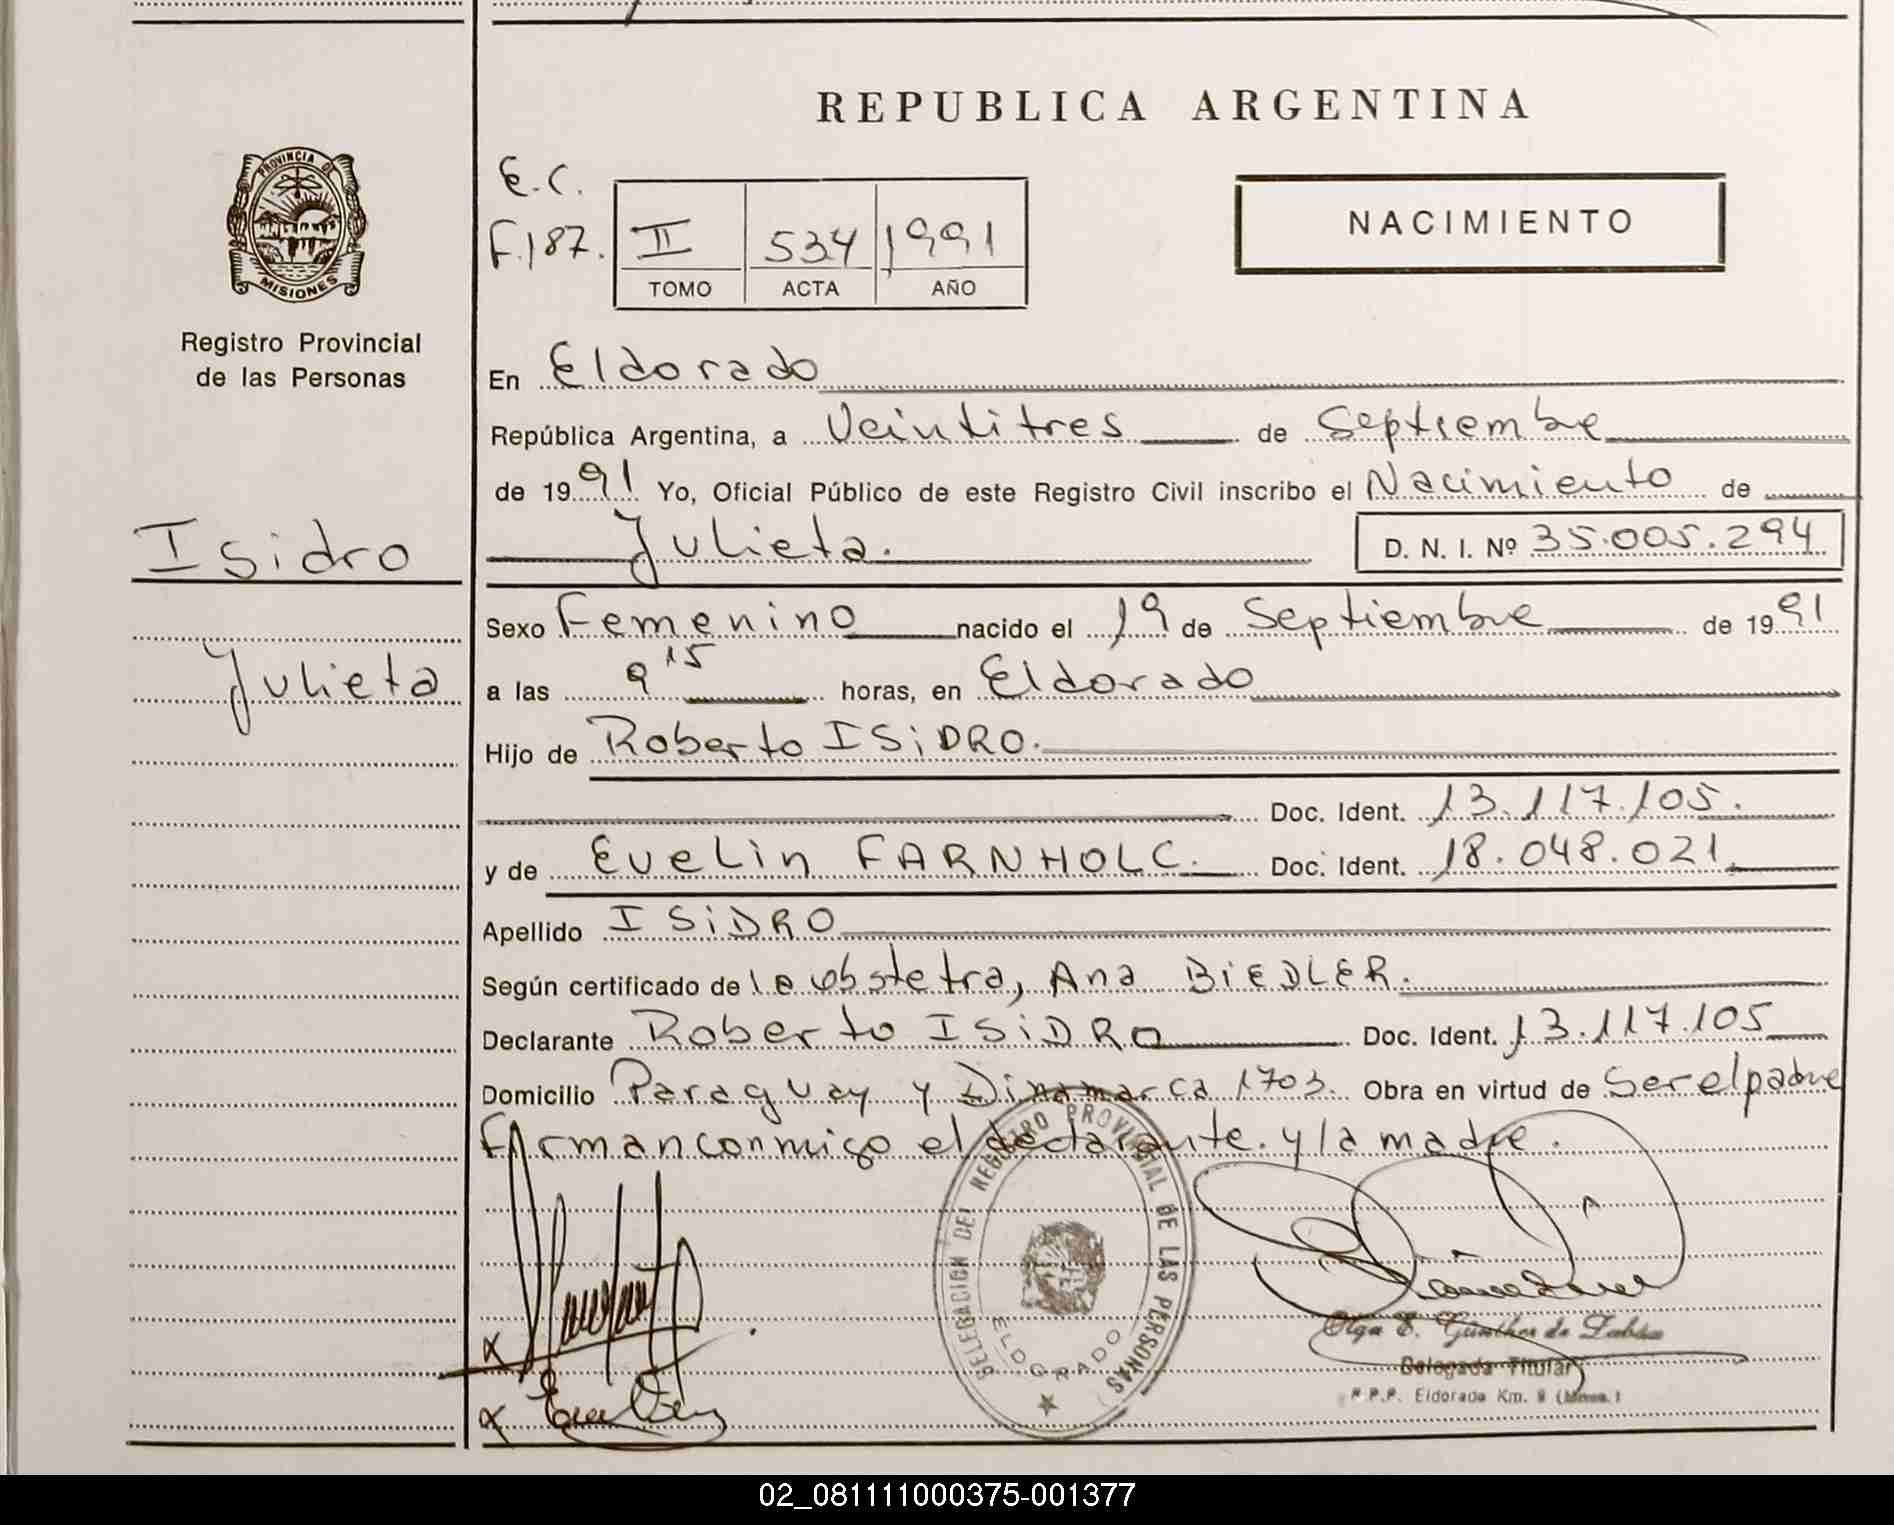 REPUBLICA ARGENTINA
PROVINCIA DE
MISIONES
Registro Provincial
de las Personas
E.C.
F.187.
II 534 1991
TOMO ACTA AÑO
NACIMIENTO
En Eldorado
República Argentina, a Veintitres de Septiembre
de 1991 Yo, Oficial Público de este Registro Civil inscribo el Nacimiento de
Isidro
Julieta. D. N. I. Nº 35.005.294
Sexo Femenino nacido el 19 de Septiembre de 1991
Julieta
a las 9 15 horas, en Eldorado
Hijo de Roberto ISiDRO.
Doc. Ident. 13.117.105.
y de Evelin FARNHOLC. Doc. Ident. 18.048.021.
Apellido ISiDRO
Según certificado de la obstetra, Ana BiEDLER.
Declarante Roberto ISiDRO Doc. Ident. 13.117.105
Domicilio Paraguay y Dinamarca 1703. Obra en virtud de Ser el padre
firman conmigo el declarante. y la madre.
DELEGACION DEL REGISTRO PROVINCIAL DE LAS PERSONAS
ELDORADO
Olga E. Günther de
Delegada Titular
R.P.P. Eldorado Km. 9 (Mnes.)
02_081111000375-001377